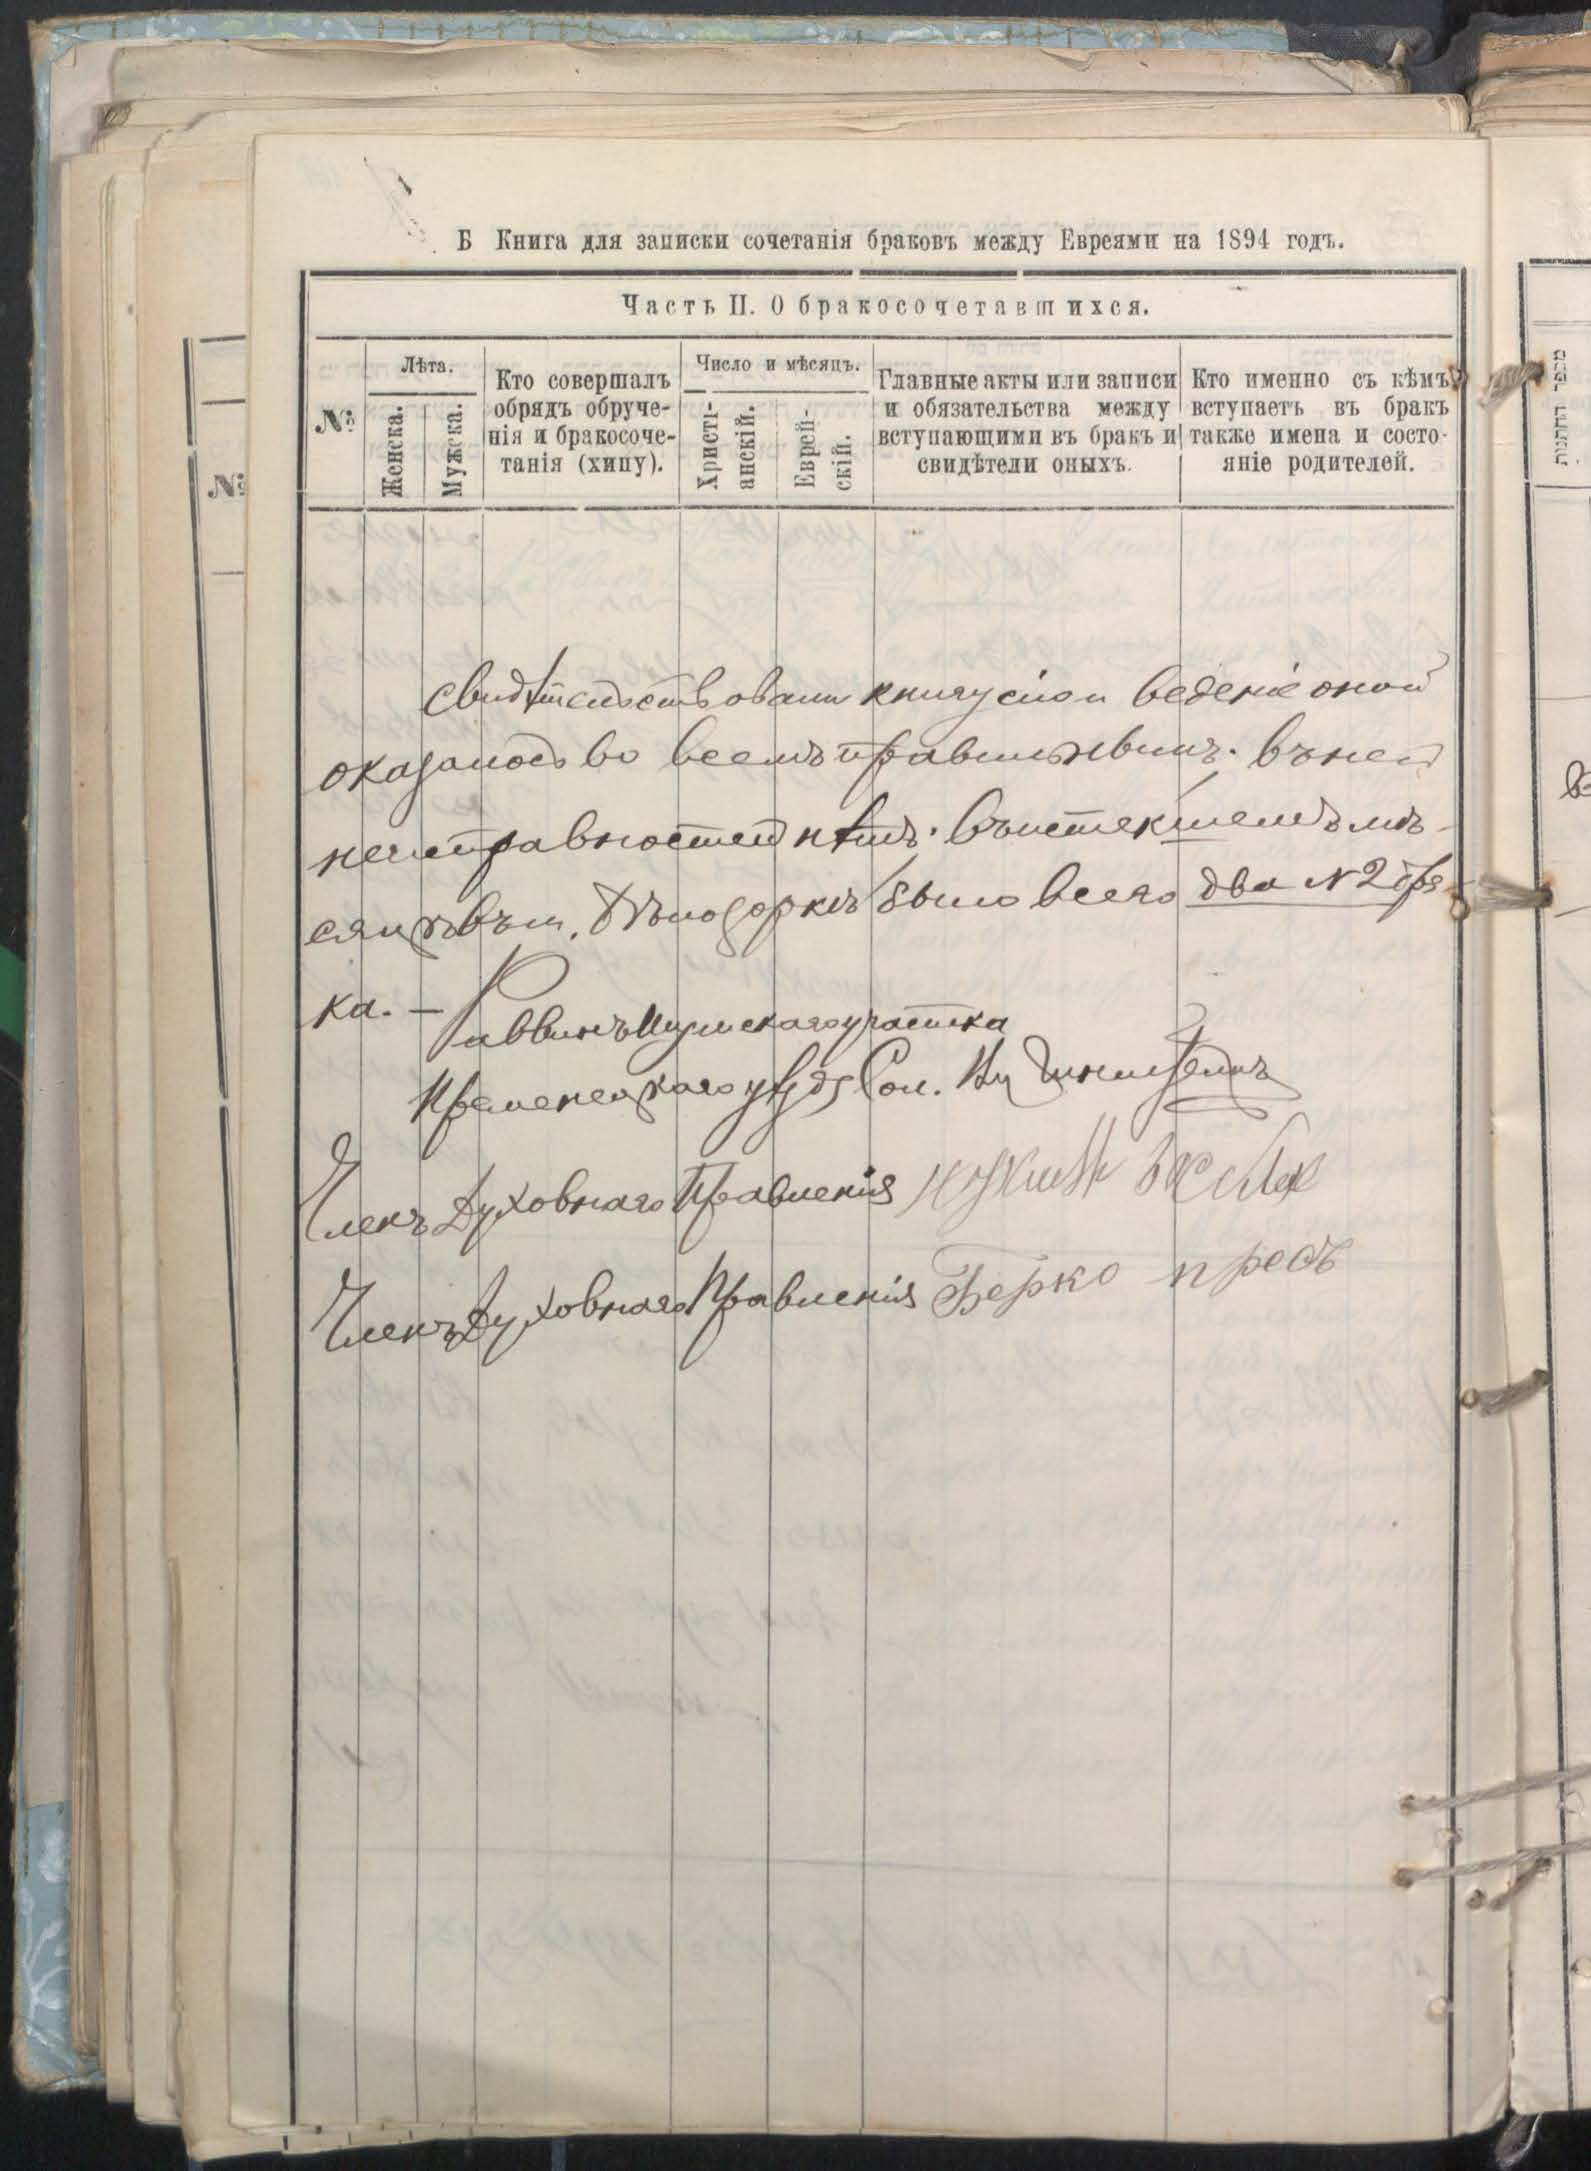 Б Книга для записки сочетанія браковъ между Евреями на 1894 годъ.
Часть II. О бракосочетавшихся.
№
Лѣта.
Женска.
Мужска.
Кто совершалъ
обрядъ обруче-
нія и бракосоче-
танія (хипу).
Число и мѣсяцъ.
Христі-
анскій.
Еврей-
скій.
Главные акты или записи
и обязательства между
вступающими въ бракъ и
свидѣтели оныхъ.
Кто именно съ кѣмъ
вступаетъ въ бракъ
также имена и состо-
яніе родителей.
№
מספר החתנות
Свидѣтельствовали книгу сію и веденіе оной
оказалось во всемъ правильнымъ. въ ней
неисправностей нѣтъ. въ истекшемъ мѣ-
сяцѣ въ м. было всего два №2 бра
ка. —
Раввинъ участка
Кременецкаго уѣзда Сол.
Членъ Духовнаго Правленія
Членъ Духовнаго Правленія Берко пресъ